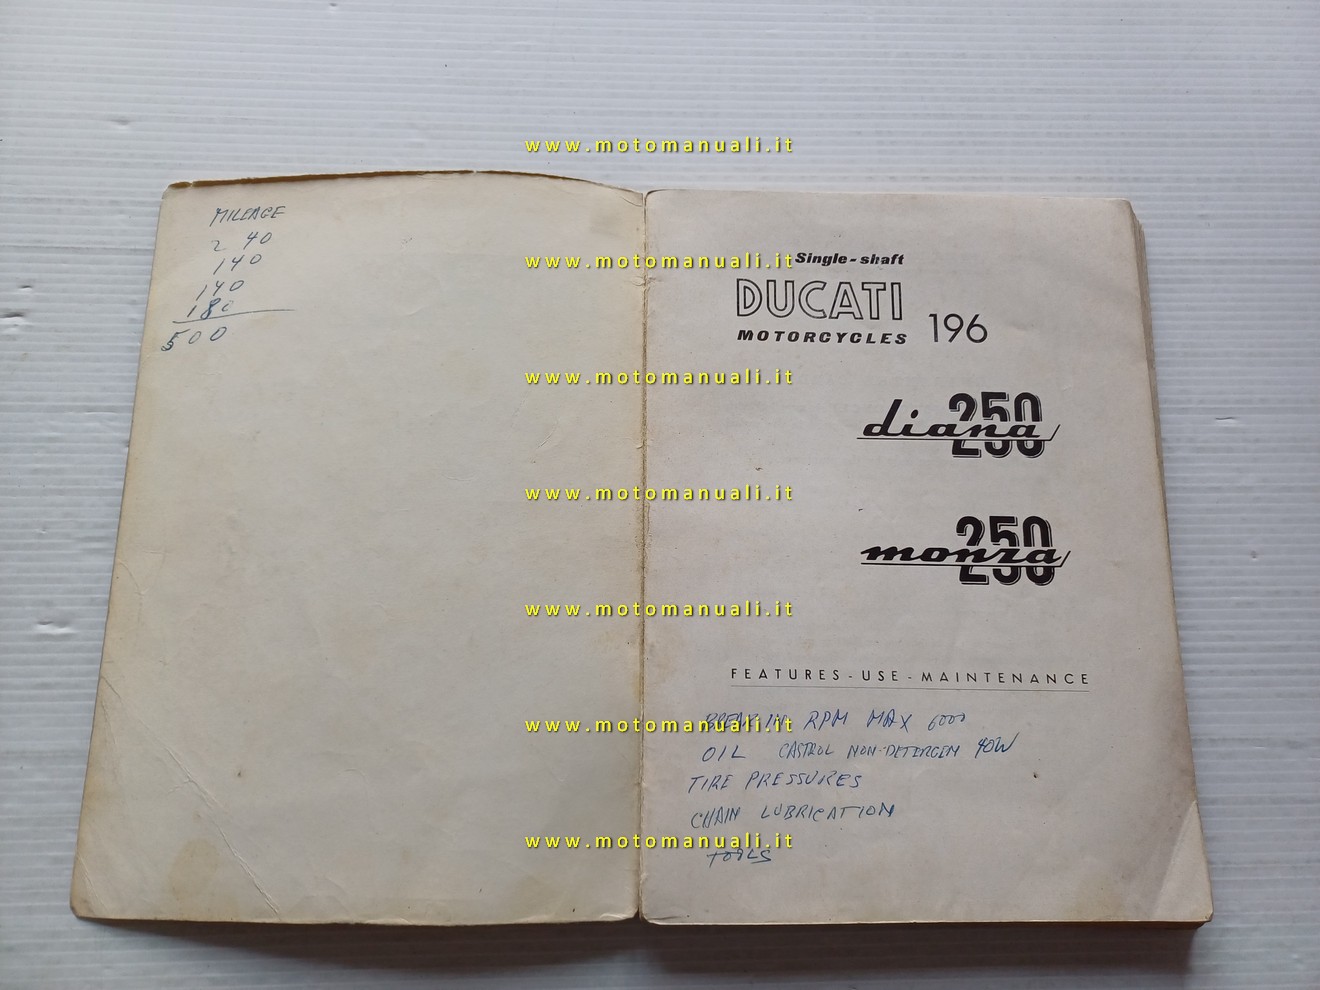 MILEAGE
2 40
140
140
180
500
Single-shaft
DUCATI
MOTORCYCLES 196
diana 250
monza 250
FEATURES - USE - MAINTENANCE
BREAK IN RPM MAX 6000
OIL CASTROL NON-DETERGEN 40W
TIRE PRESSURES
CHAIN LUBRICATION
TOOLS
www.motomanuali.it
www.motomanuali.it
www.motomanuali.it
www.motomanuali.it
www.motomanuali.it
www.motomanuali.it
www.motomanuali.it